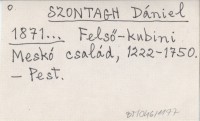 SZONTAGH Dániel
1871... Felső-kubini
Meskó család, 1222-1750.
- Pest.